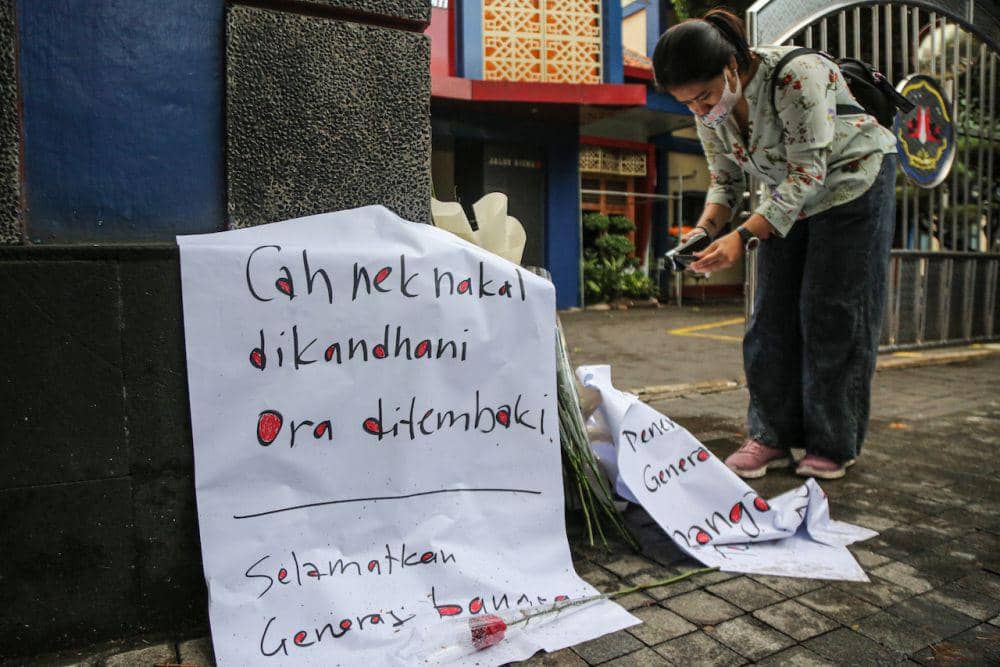 Cah nek nakal
dikandhani
Ora ditembaki.
Selamatkan
Generasi bangsa
Gener
bangsa